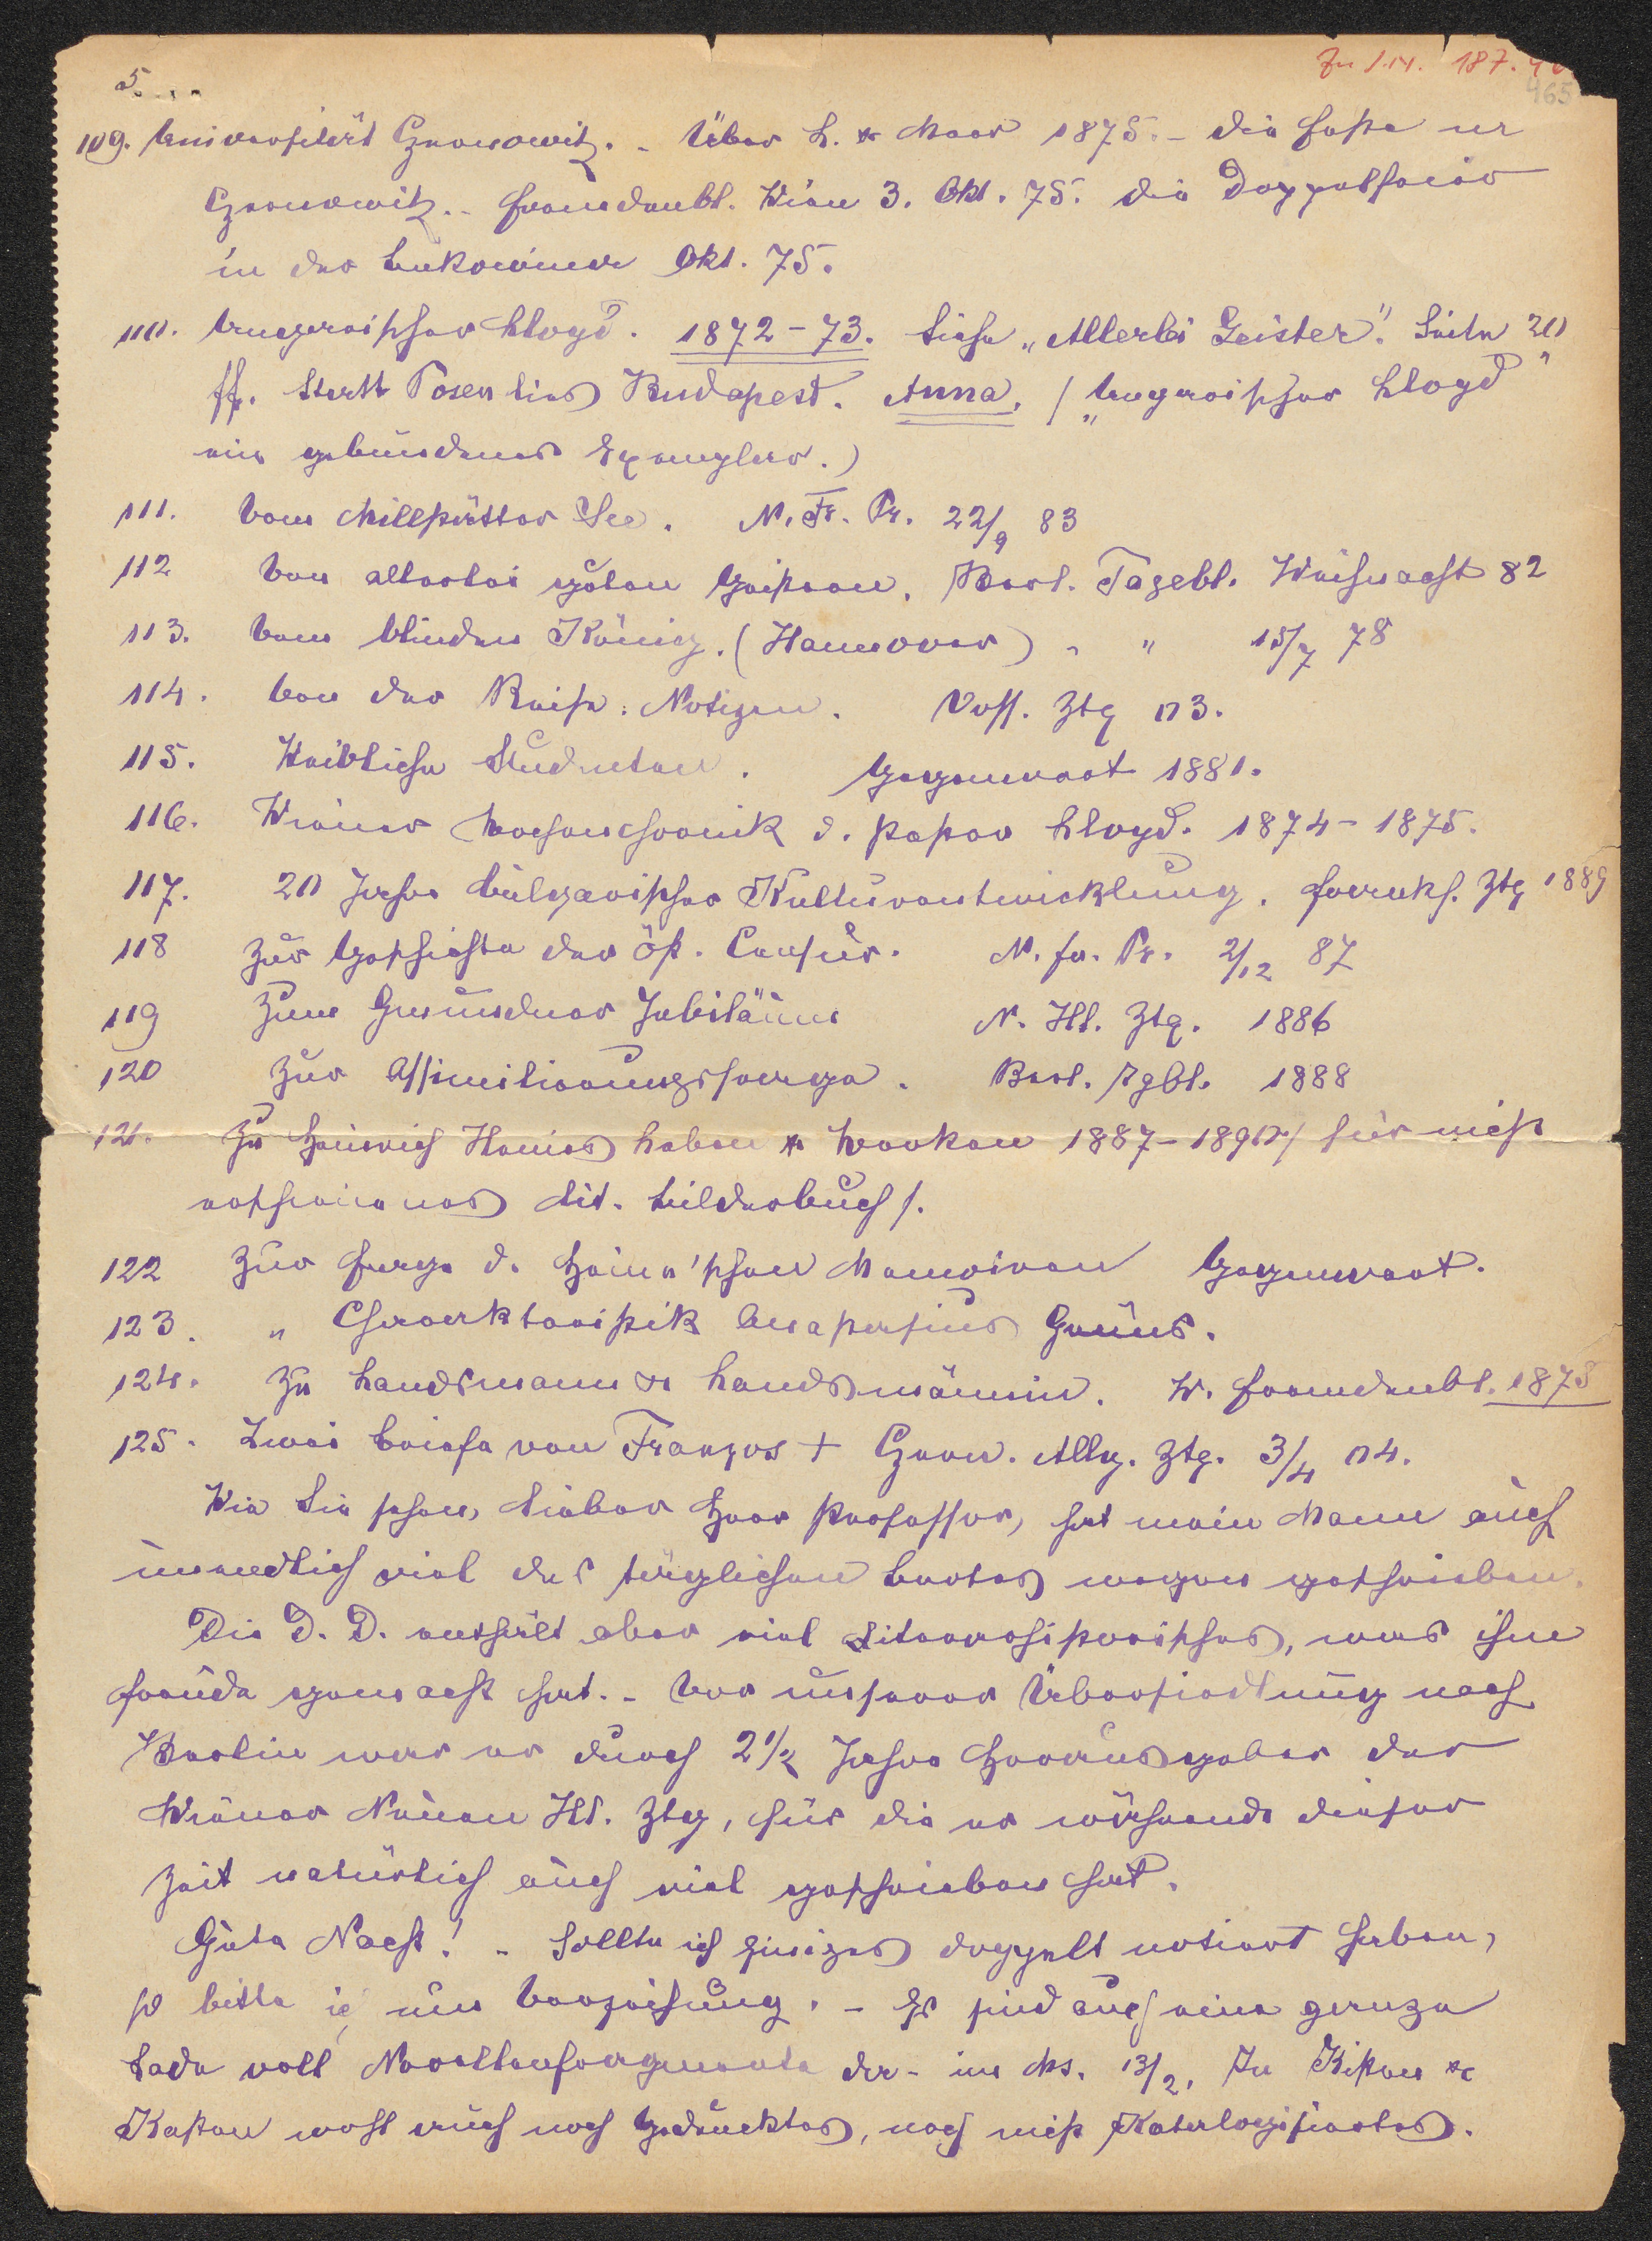 Zu I.N. 187.
465
5.
109. Universität Czernowitz. - Über L. & Meer 1875. - Die Feste in
Czernowitz. - Fremdenbl. Wien 3. Okt. 75. Die Doppelfeier
in der Bukowina Okt. 75.
110. Ungarischer Lloyd. 1872-73. Siehe „Allerlei Geister". Seite 20
ff. Statt Posen lies Budapest. Anna. / „Ungarischer Lloyd"
ein gebundenes Exemplar.)
111. Vom Millstätter See. N. Fr. Pr. 22/9 83
112 Von allerlei guten Geistern. Berl. Tagebl. Weihnacht 82
113. Vom blinden König. (Hannover) " " 15/7 78
114. Von der Reise. Notizen. Voss. Ztg 03.
115. Weibliche Studenten. Gegenwart 1881.
116. Wiener Wochenchronik d. Pester Lloyd. 1874-1875.
117. 20 Jahre bulgarischer Kulturentwicklung. Frankf. Ztg 1889
118 Zur Geschichte der öst. Censur. N. fr. Pr. 2/12 87
119 Zum Gmundner Jubiläum N. Ill. Ztg. 1886
120 Zur Assimilierungsfrage. Berl. Tgbl. 1888
121. Zu Heinrich Heines Leben & Werken 1887-1890 / für nicht
erschienenes Lit. Bilderbuch /.
122 Zur Frage d. Heine'schen Memoiren Gegenwart.
123. " Charakteristik Anastasius Grüns.
124. Zu Landsmann & Landsmännin. W. Fremdenbl. 1875
125. Zwei Briefe von Franzos + Czern. Allg. Ztg. 3/4 04.
Wie Sie sehen, lieber Herr Professor, hat mein Mann auch
unendlich viel des täglichen Brotes wegen geschrieben.
Die D. D. enthält aber viel Literarhistorisches, was ihm
Freude gemacht hat. - Vor unserer Übersiedlung nach
Berlin war er durch 2½ Jahre Herausgeber der
Wiener Neuen Ill. Ztg, für die er während dieser
Zeit natürlich auch viel geschrieben hat.
Gute Nacht! - Sollte ich Einiges doppelt notiert haben,
so bitte ich um Verzeihung. - Es sind auch eine ganze
Lade voll Novellenfragmente da - im Ms. 13/2. In Kisten &
Kasten wohl auch noch Gedrucktes, noch nicht Katalogisiertes.